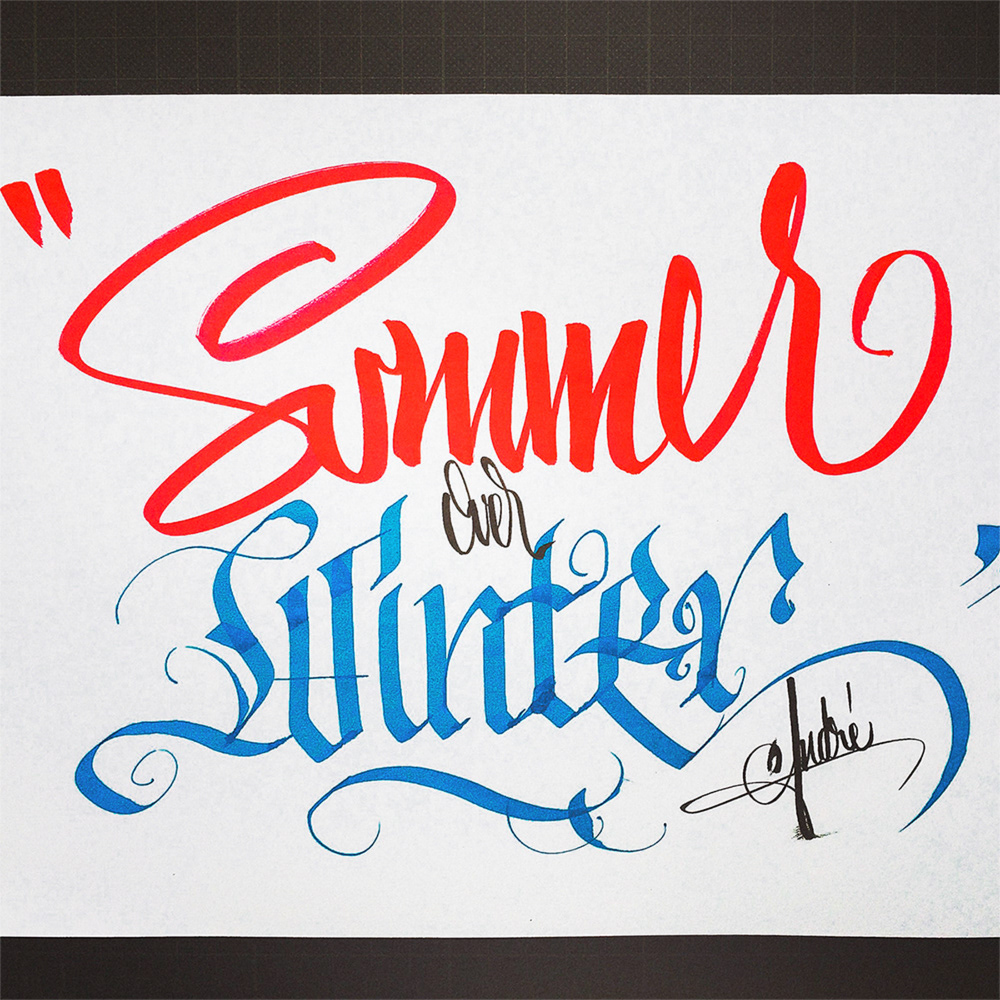 "Sommer
over
Winter"
André